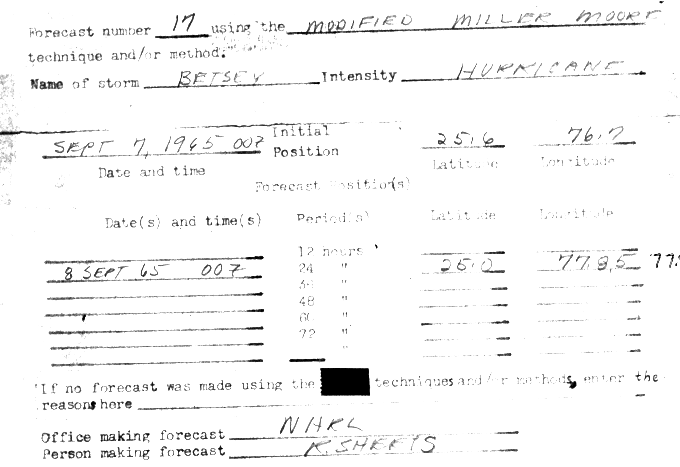 Forecast number 17 using the MODIFIED MILLER MOORE
technique and/or method.
Name of storm BETSEY Intensity HURRICANE
SEPT 7, 1965 00Z Initial Position 25.6 76.7
Date and time Latitude Longitude
Forecast Position(s)
Date(s) and time(s) Period(s) Latitude Longitude
12 hours
8 SEPT 65 00Z 24 " 25.0 77.85
36 "
48 "
60 "
72 "
"
If no forecast was made using the techniques and/or methods, enter the
reasons here
Office making forecast NHRL
Person making forecast R. SHEETS